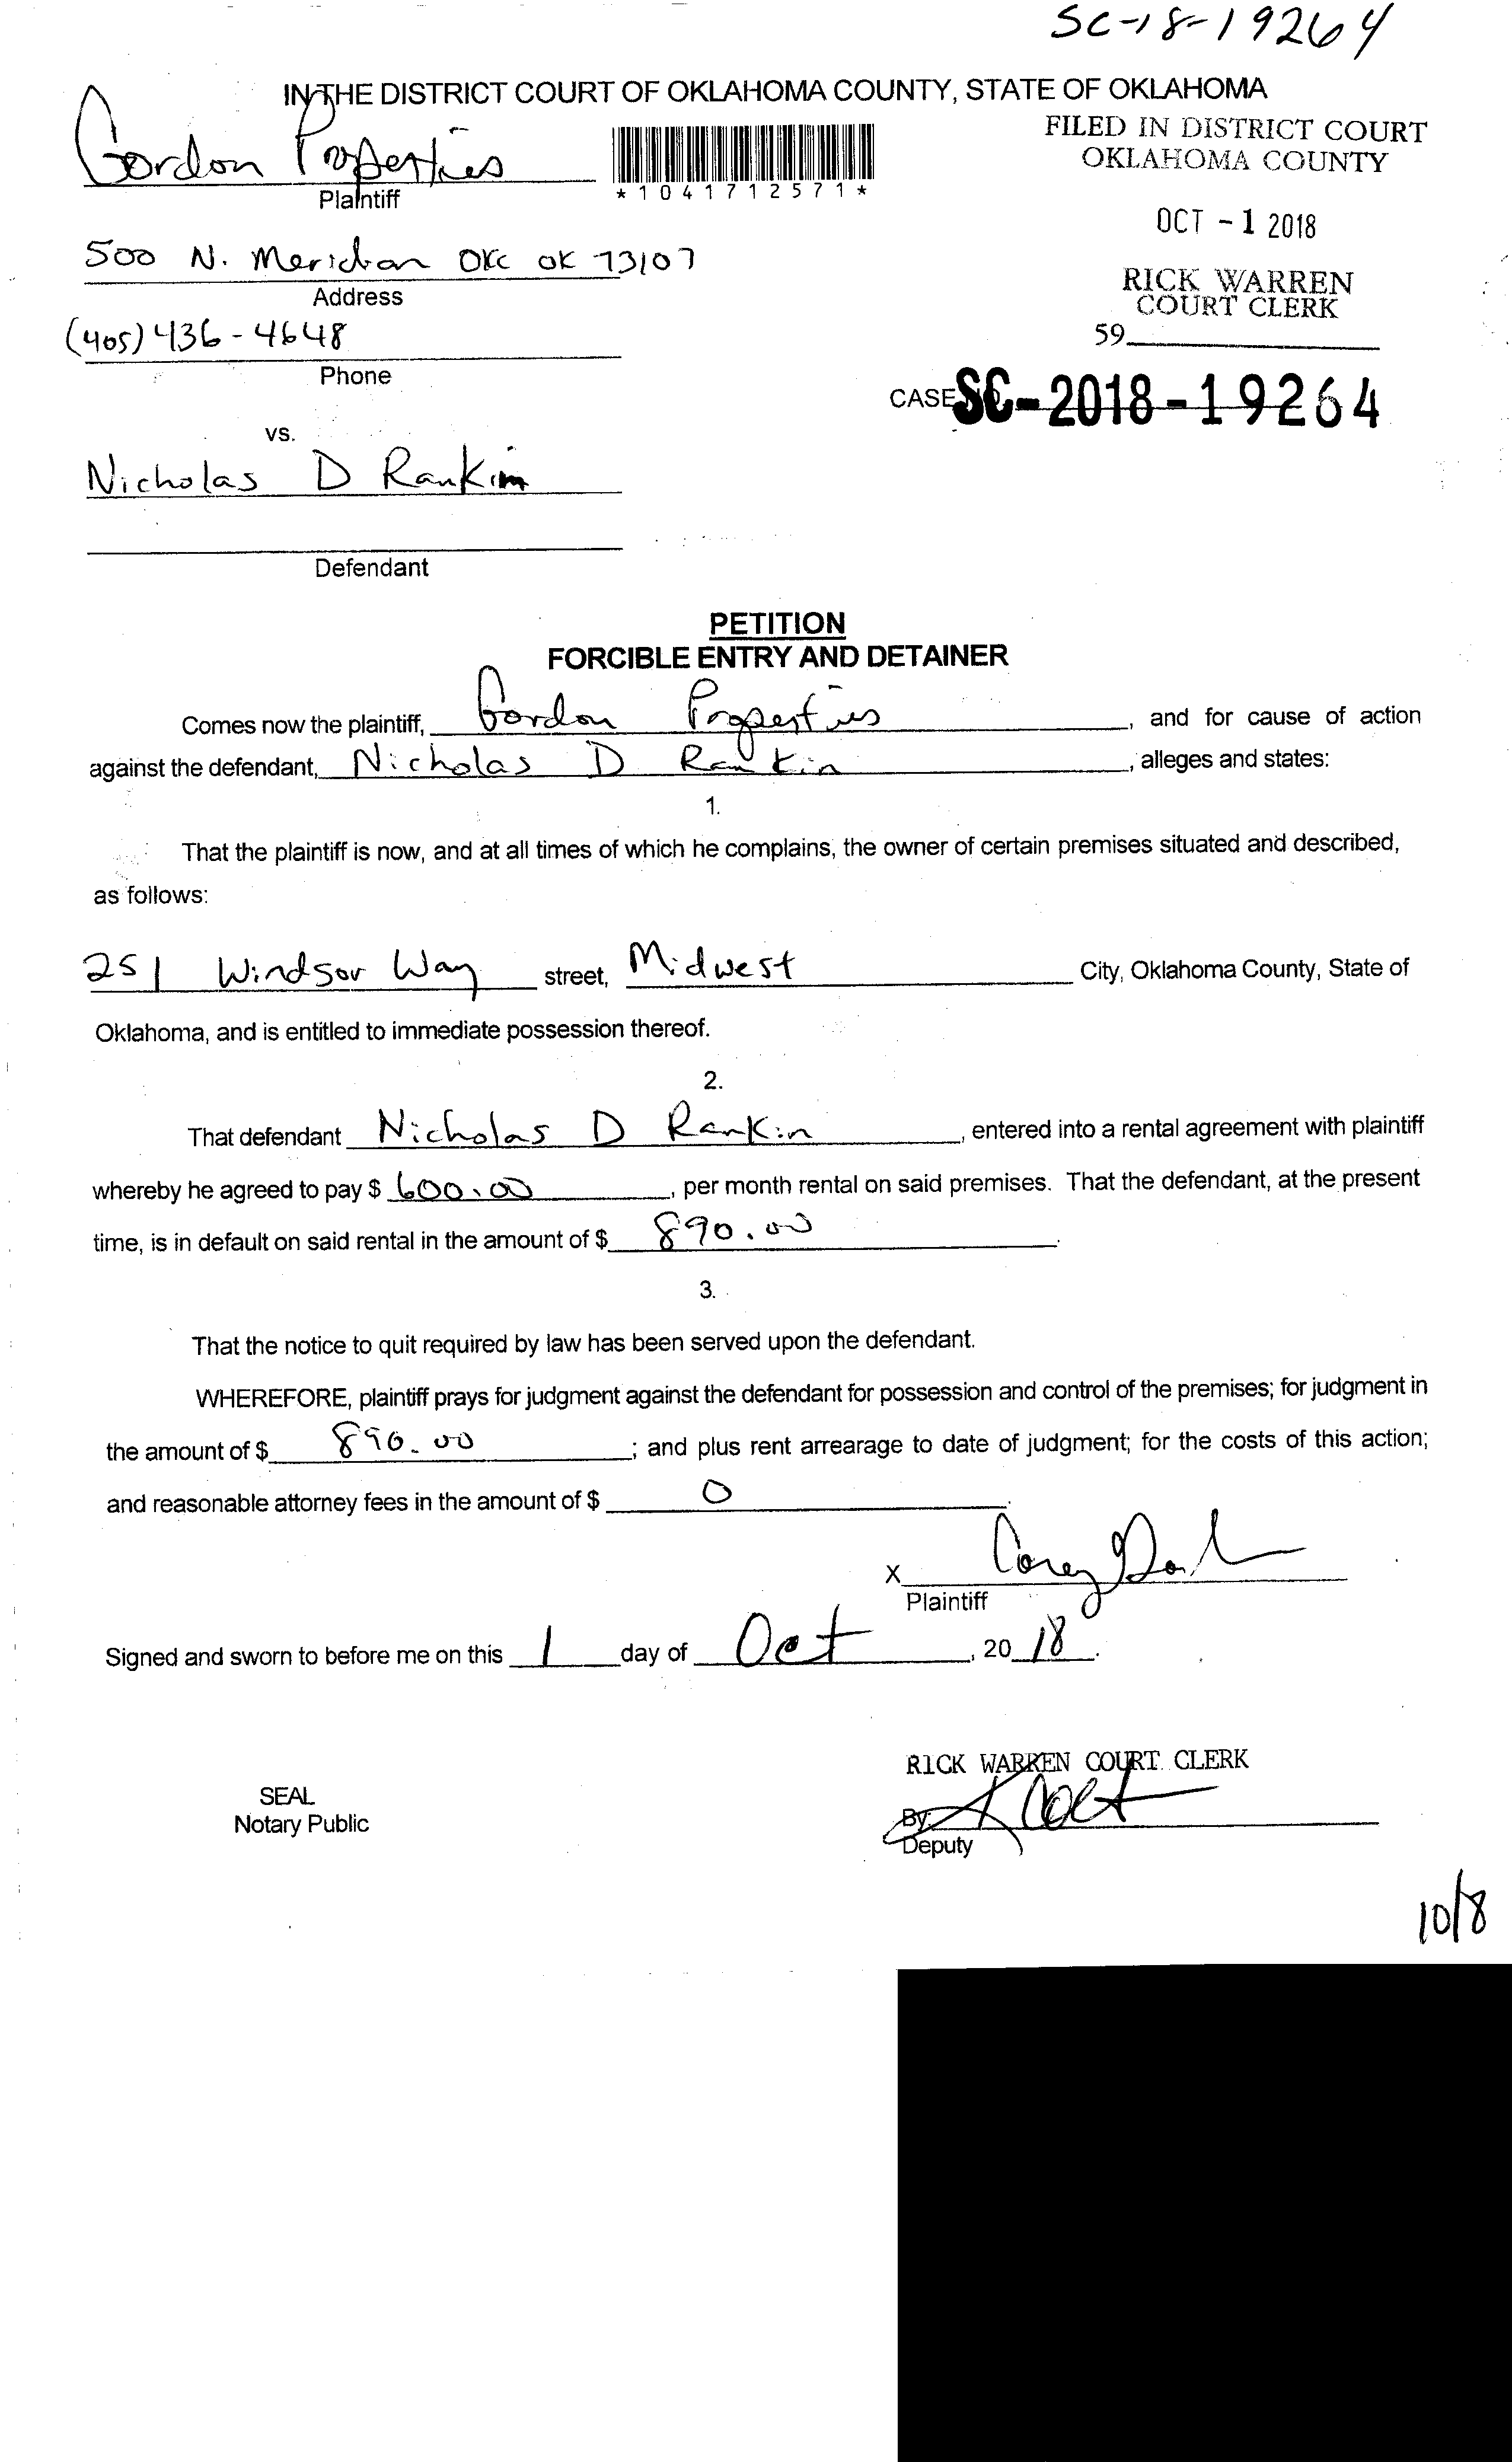 SC-18-19264
IN THE DISTRICT COURT OF OKLAHOMA COUNTY, STATE OF OKLAHOMA
FILED IN DISTRICT COURT
OKLAHOMA COUNTY
Gordon Properties
Plaintiff
*1041712571*
OCT -1 2018
500 N. Meridian OKC OK 73107
Address
RICK WARREN
COURT CLERK
(405) 436-4648
59
Phone
CASE NO. SC-2018-19264
vs.
Nicholas D Rankin
Defendant
PETITION
FORCIBLE ENTRY AND DETAINER
Comes now the plaintiff, Gordon Properties, and for cause of action
against the defendant, Nicholas D Rankin, alleges and states:
1.
That the plaintiff is now, and at all times of which he complains, the owner of certain premises situated and described,
as follows:
251 Windsor Way street, Midwest City, Oklahoma County, State of
Oklahoma, and is entitled to immediate possession thereof.
2.
That defendant Nicholas D Rankin, entered into a rental agreement with plaintiff
whereby he agreed to pay $ 600.00, per month rental on said premises. That the defendant, at the present
time, is in default on said rental in the amount of $ 890.00.
3.
That the notice to quit required by law has been served upon the defendant.
WHEREFORE, plaintiff prays for judgment against the defendant for possession and control of the premises; for judgment in
the amount of $ 890.00; and plus rent arrearage to date of judgment; for the costs of this action;
and reasonable attorney fees in the amount of $ 0.
X Corey
Plaintiff
Signed and sworn to before me on this 1 day of Oct, 20 18.
RICK WARREN COURT CLERK
SEAL
Notary Public
By:
Deputy
10/8